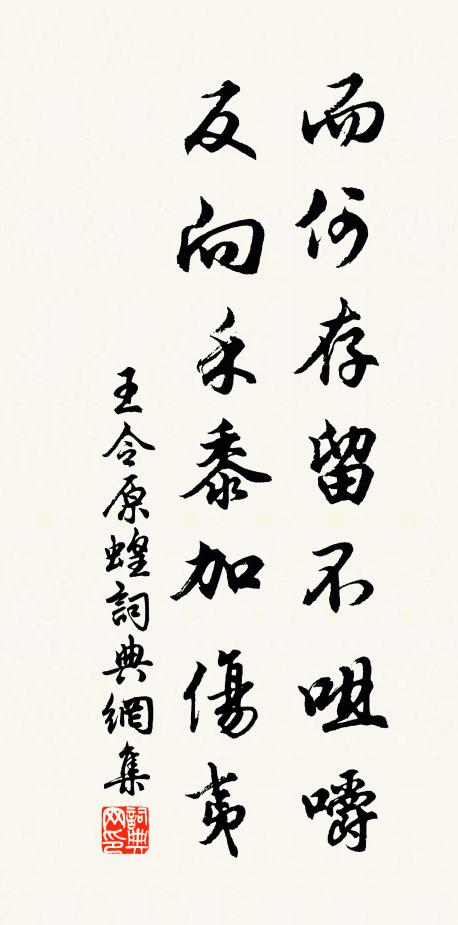 而何存留不咀嚼
反向禾黍加傷夷
王令原蝗詞典網集
詞典网印